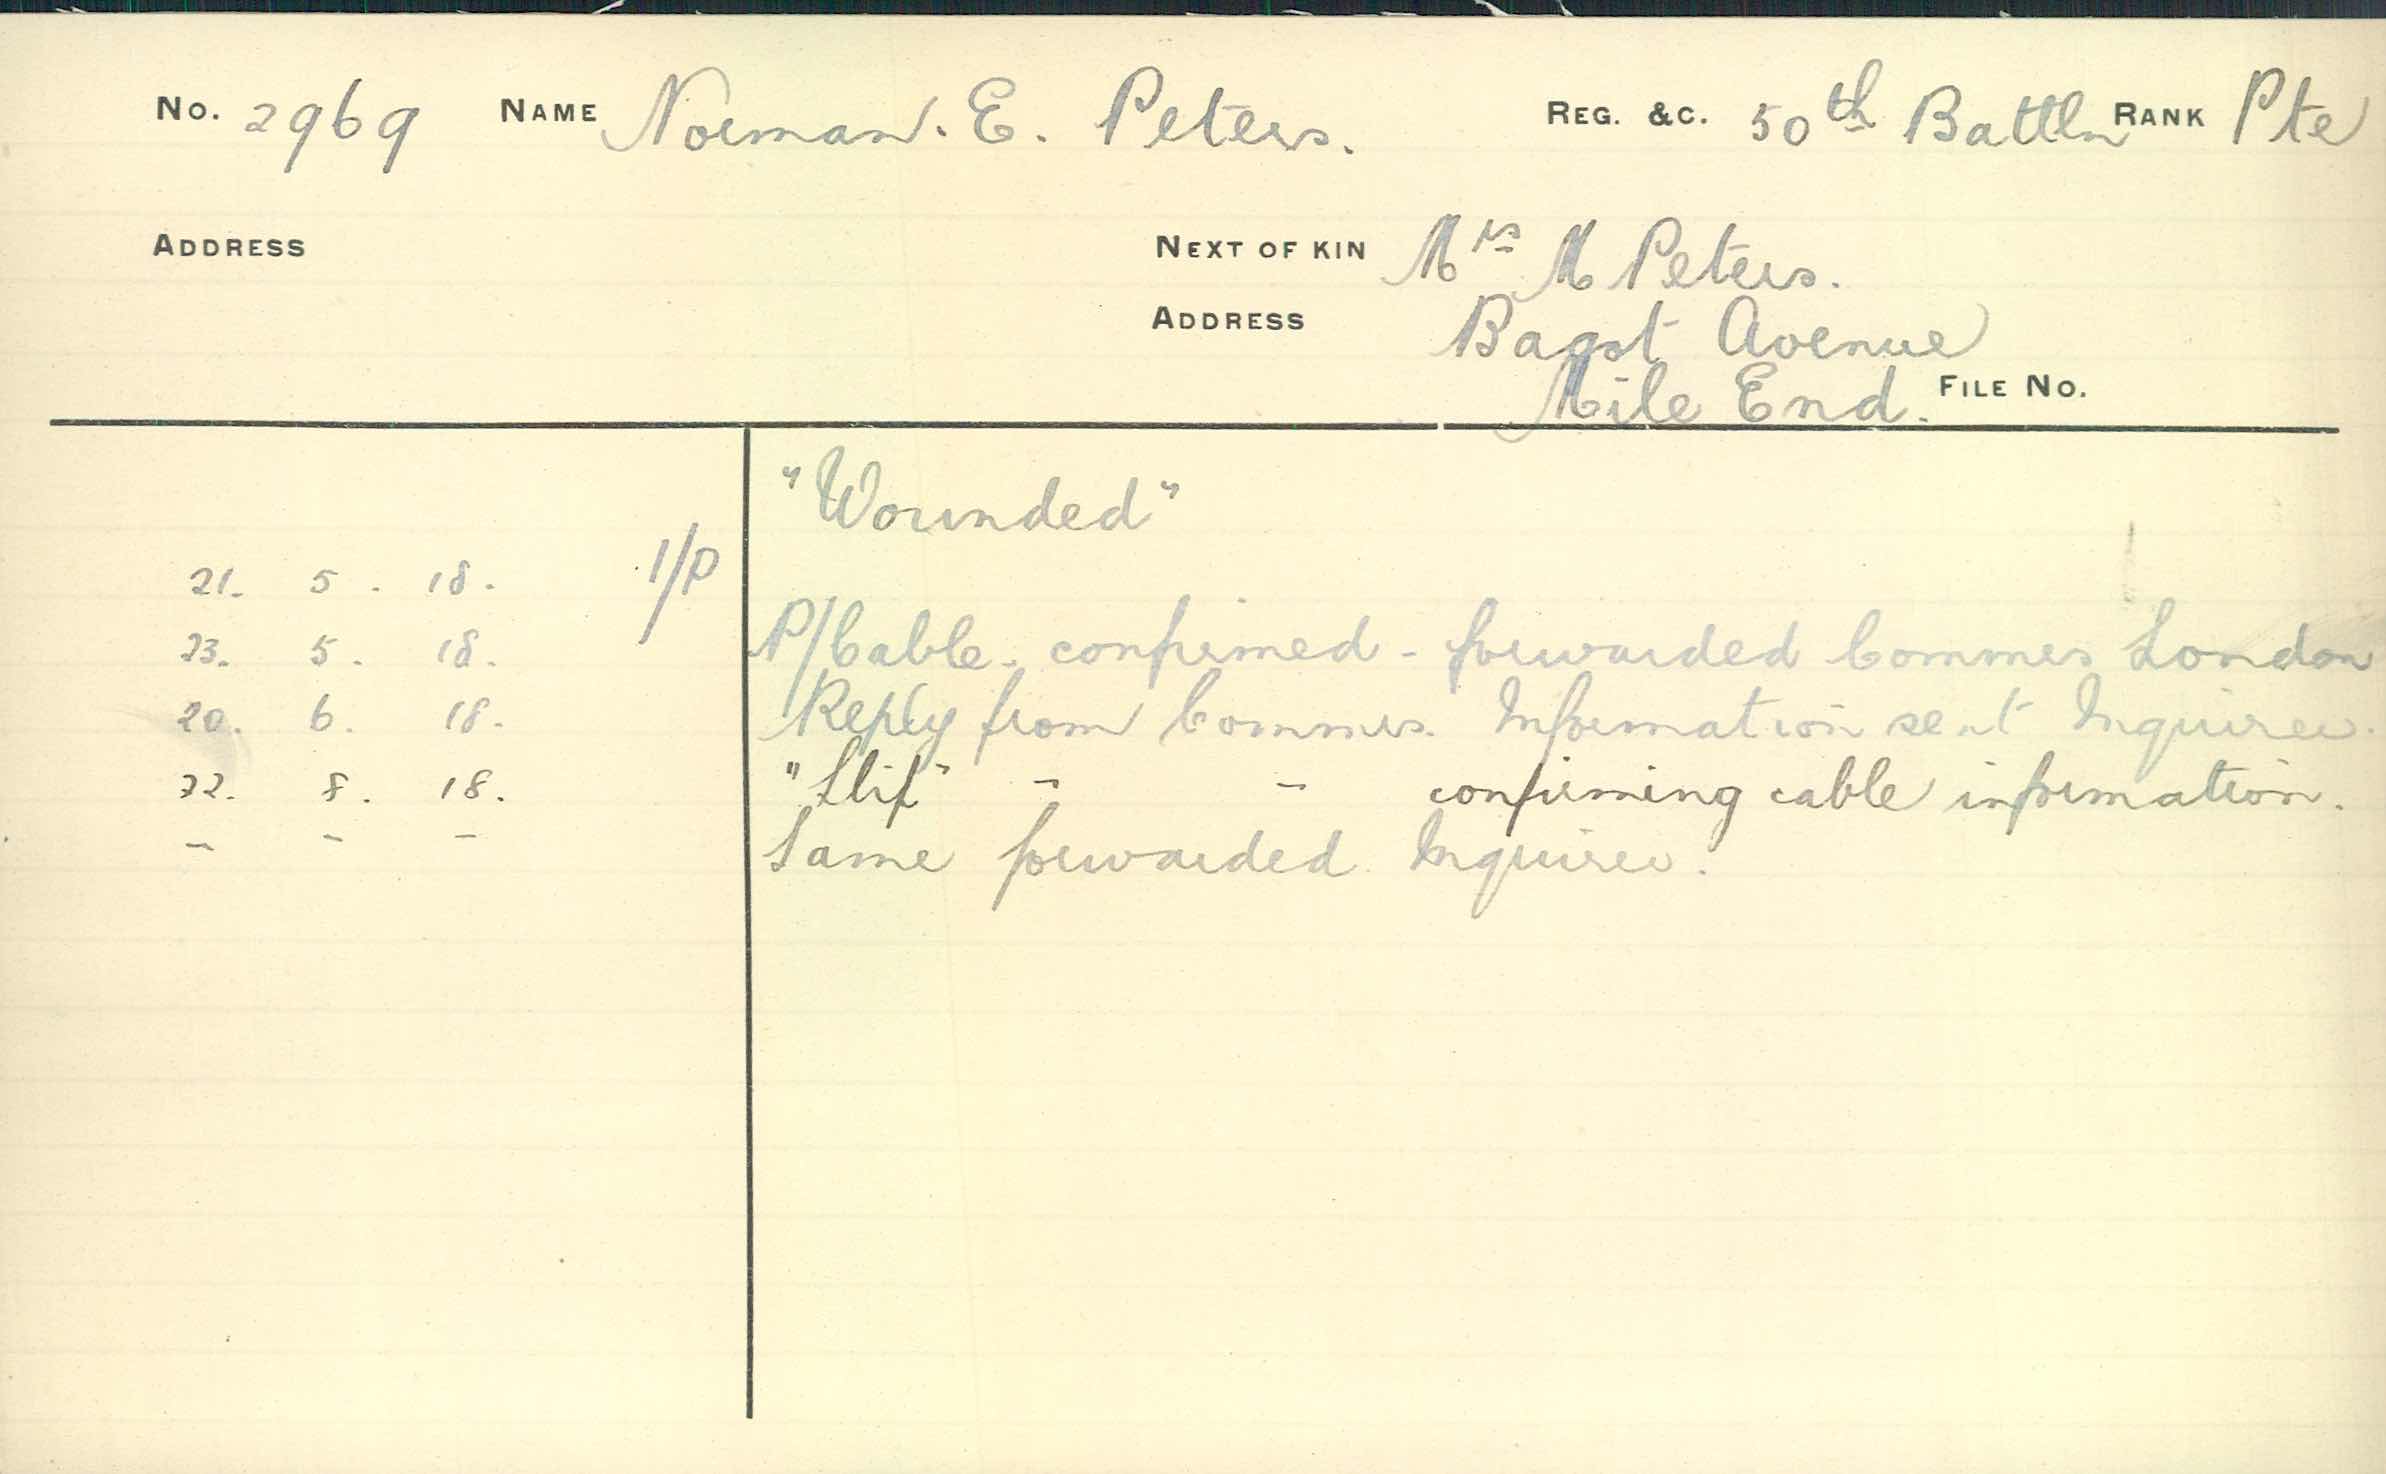 No. 2969 NAME Norman. E. Peters. REG. &C. 50th Battln RANK Pte
ADDRESS NEXT OF KIN Mrs M Peters.
ADDRESS Bagot Avenue
Mile End. FILE No.
"Wounded"
21. 5. 18. 1/P
23. 5. 18. P/Cable. confirmed - forwarded Commrs London
20. 6. 18. Reply from Commrs. Information sent Inquirer.
22. 8. 18. "Slip" " " confirming cable information.
" " " Same forwarded Inquirer.